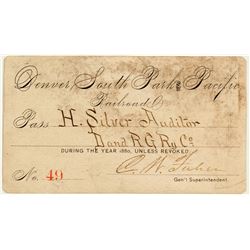 Denver, South Park & Pacific
Railroad Co.
Pass H. Silver Auditor
D and R.G. Ry Co
DURING THE YEAR 1880, UNLESS REVOKED
No. 49 C. W. Fisher
Gen'l Superintendent.